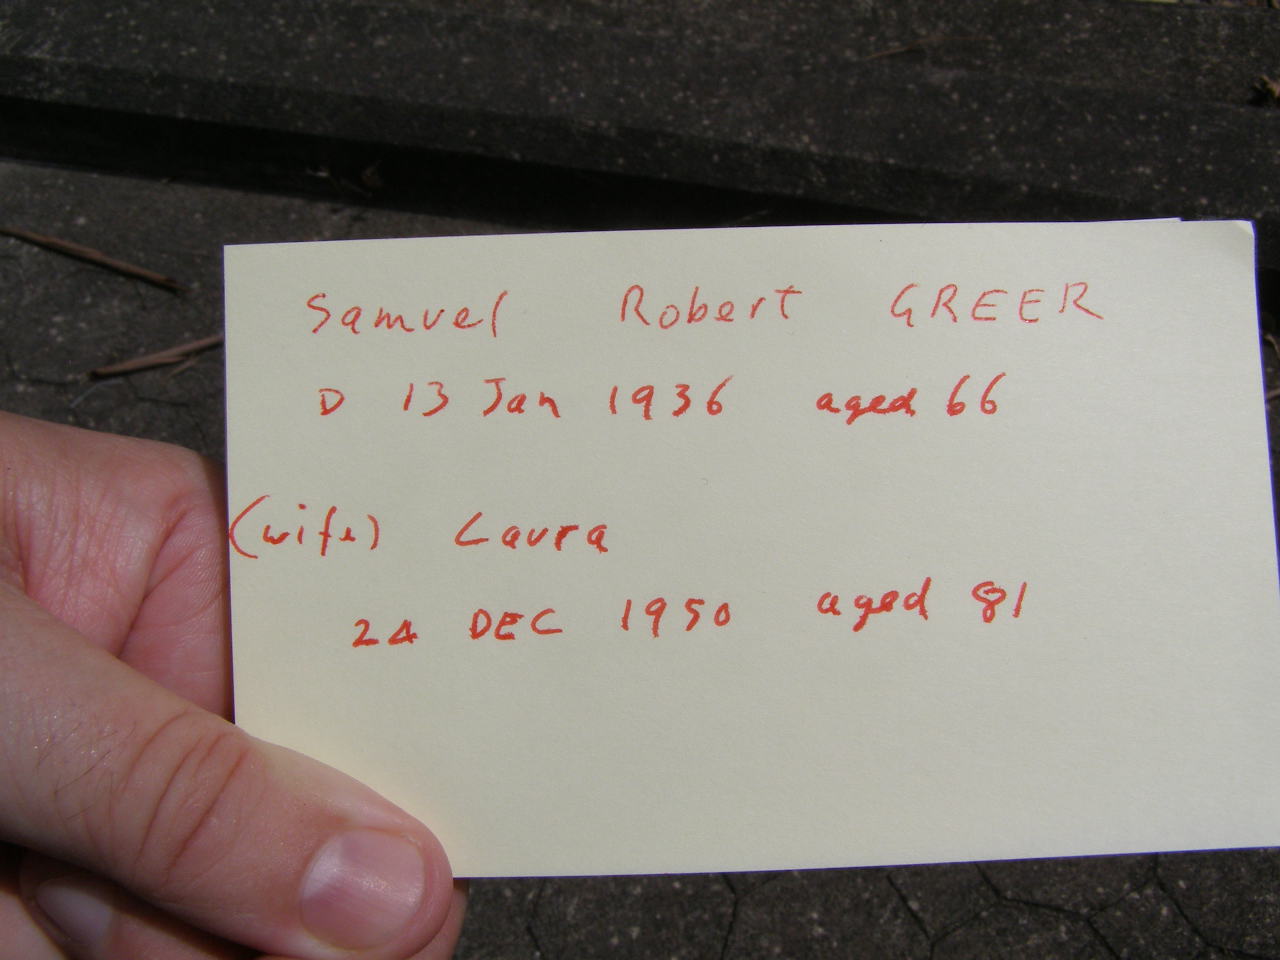 Samuel Robert GREER
D 13 Jan 1936 aged 66
(wife) Laura
24 DEC 1950 aged 81